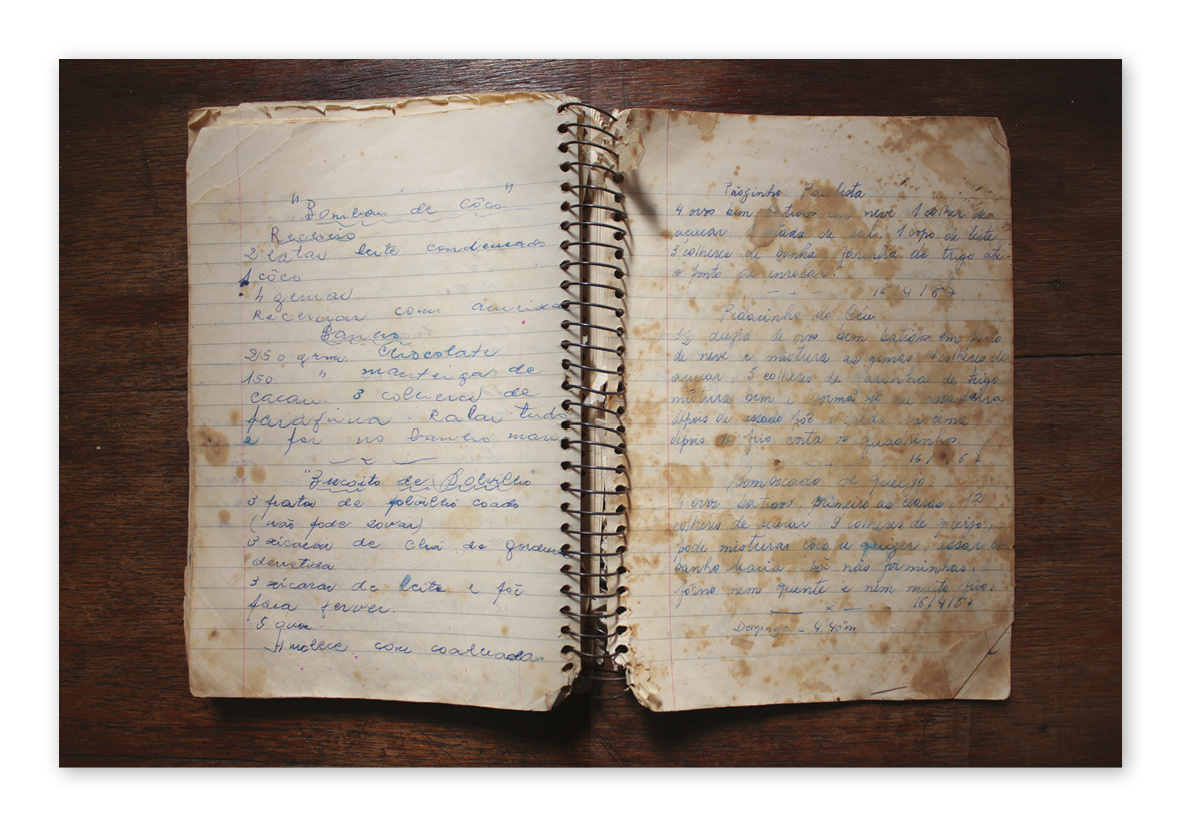 "Bombom de Côco"
Recheio
2 latas leite condensado
1 côco
4 gemas
Rechear com ameixa
Banho
250 grm Chocolate
150 " manteiga de
cacau 3 colheres de
parafina. Ralar tudo
e por no Banho mari
"Biscoito de Polvilho
3 pratos de polvilho coado
(não pode sovar)
3 xicaras de chá de gordura
derretida
3 xicaras de leite e põe
para ferver.
5 ovos
Amolece com coalhada
Pãozinho Paulista
4 ovos bem batidos em neve, 1 colher de
açucar 1 pitada de sal, 1 copo de leite
3 colheres de banha farinha de trigo até
o ponto de enrolar.
16/4/67
Pedacinho do Céu
1/2 duzia de ovos bem batidos em
de neve e mistura as gemas colheres de
açucar, 5 colheres de farinha de trigo
mistura bem e
depois de assado põe
depois de frio corta os quadrinhos.
16/ /67
Bombocado de queijo
6 ovos batidos, primeiro as claras 12
colheres de açucar 9 colheres de queijo,
pode misturar côco se quizer, assar em
banho maria pôe nas forminhas,
forno nem quente e nem muito frio.
16/4/67
Domingo - 4,40m